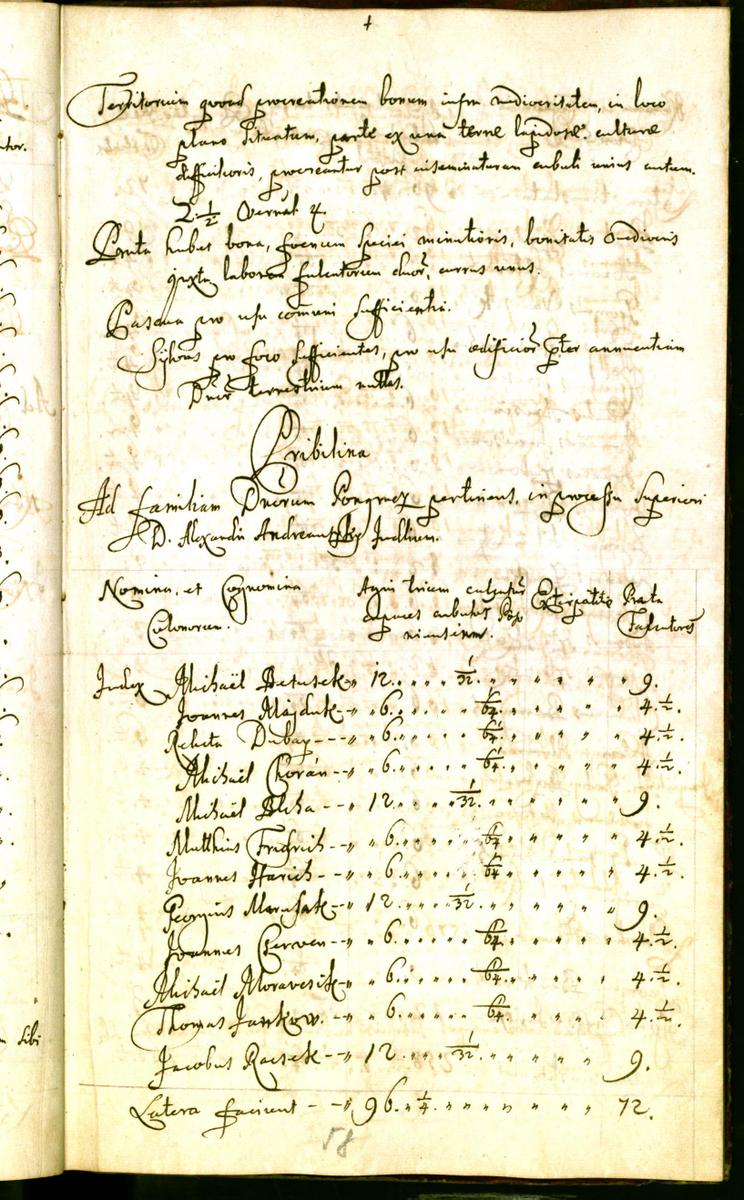 4
Territorium quoad procreationem bonum infra mediocritatem, in loco
plano situatum, parte ex una terrae lapidosae culturae
difficilioris, procreantur post inseminaturam cubuli unius autum.
2 1/2
Prata habet bona, foenum speciei minutioris, bonitatis mediocris
juxta laborem falcatorum duor, currus unus.
Pascua pro usu comuni sufficientia.
Sylvas pro foco sufficientes, pro usu aedificior pter annuentiam
Dnor terrestrium nullas.
Pribilina
Ad familiam Dnorum Pongracz pertinens, in processu Superiori
D. Alexandri Andreanszky Judlium.
Nomina, et Cognomina
Colonorum.
Agri tricem culturae
capaces cubulos Pos
niensium.
Extirpatitiae
Prata
Falcatores
Index Michaël Betusek 12. 1/32. 9.
Joannes Majduk 6. 1/64. 4. 1/2.
Relicta Dubay 6. 1/64. 4. 1/2.
Michaël Chorán 6. 1/64. 4. 1/2.
Michaël Blcha 12. 1/32. 9.
Matthias Fridrich 6. 1/64. 4. 1/2.
Joannes Harich 6. 1/64. 4. 1/2.
Georgius 12. 1/32. 9.
Joannes Cherven 6. 1/64. 4. 1/2.
Michaël Moravcsik 6. 1/64. 4. 1/2.
Thomas Jankow. 6. 1/64. 4. 1/2.
Jacobus Racsek 12. 1/32. 9.
Latera faciunt 96. 1/4. 72.
58